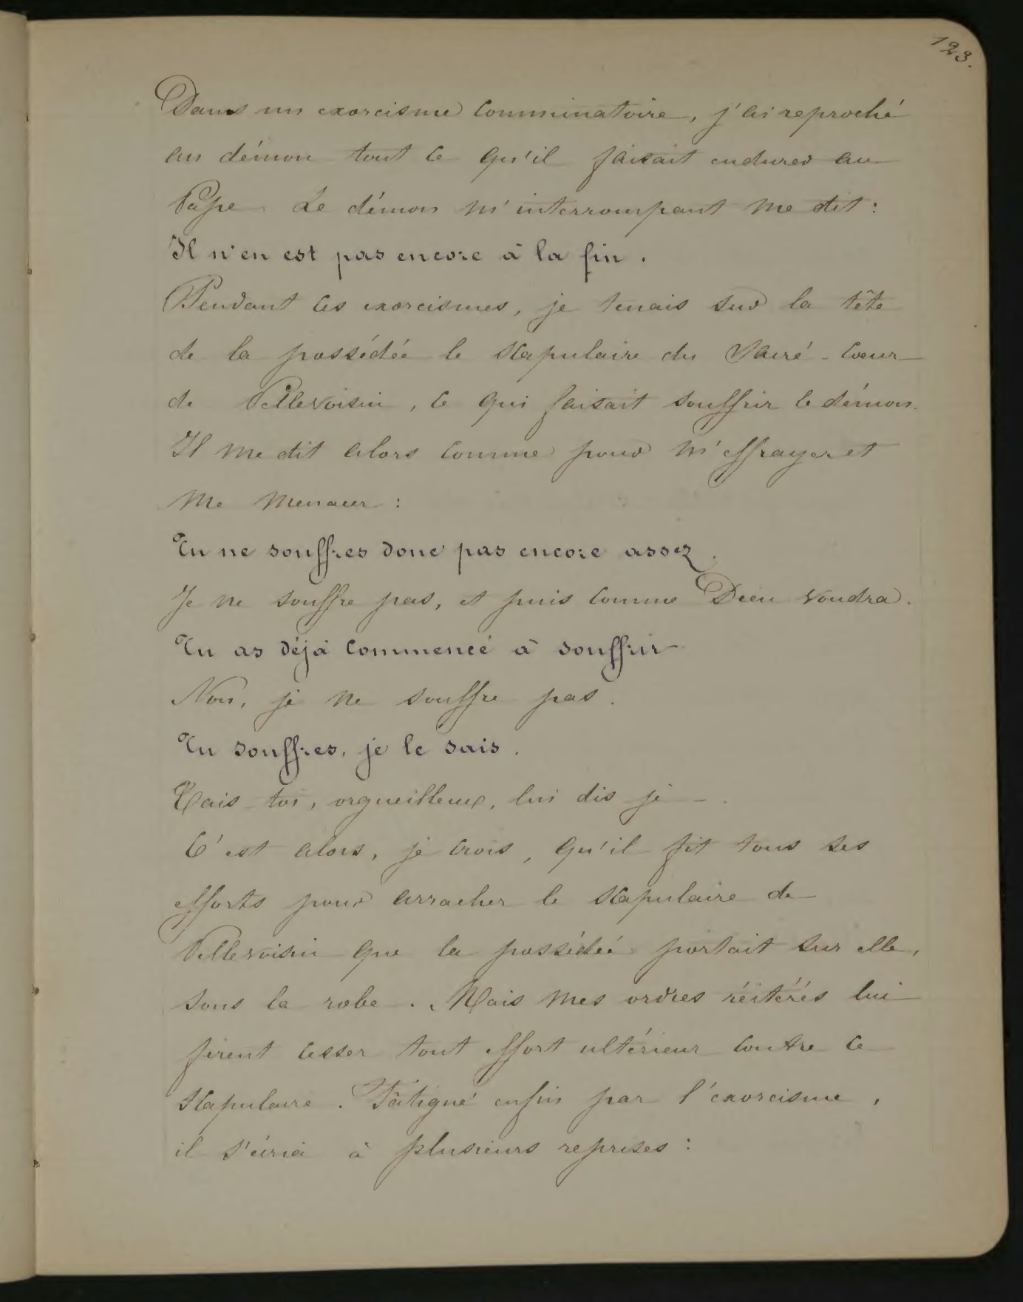 123.
Dans un exorcisme comminatoire, j'ai reproché
au démon tout ce qu'il faisait endurer au
Pape. Le démon m'interrompant me dit :
Il n'en est pas encore à la fin.
Pendant ces exorcismes, je tenais sur la tête
de la possédée le scapulaire du Sacré-Coeur
de Pellevoisin, ce qui faisait souffrir le démon.
Il me dit alors comme pour m'effrayer et
me menacer :
Tu ne souffres donc pas encore assez.
Je ne souffre pas, et puis comme Dieu voudra.
Tu as déjà commencé à souffrir
Non, je ne souffre pas.
Tu souffres, je le sais.
Tais-toi, orgueilleux, lui dis-je -.
C'est alors, je crois, qu'il fit tous ses
efforts pour arracher le scapulaire de
Pellevoisin que la possédée portait sur elle,
sous la robe. Mais mes ordres réitérés lui
firent cesser tout effort ultérieur contre ce
scapulaire. Fatigué enfin par l'exorcisme,
il s'écria à plusieurs reprises :